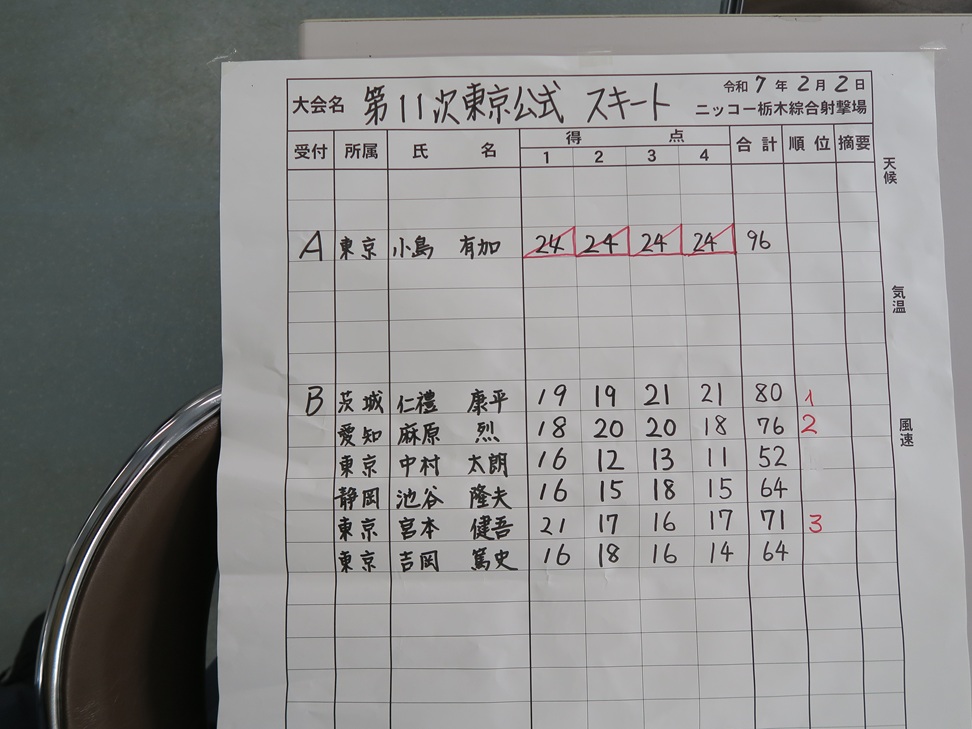 大会名 第11次東京公式 スキート 令和7年2月2日
ニッコー栃木綜合射撃場
受付 所属 氏名 得点 合計 順位 摘要
1 2 3 4
天候
A 東京 小島 有加 24 24 24 24 96
気温
B 茨城 仁禮 康平 19 19 21 21 80 1
愛知 麻原 烈 18 20 20 18 76 2
風速
東京 中村 太朗 16 12 13 11 52
静岡 池谷 隆夫 16 15 18 15 64
東京 宮本 健吾 21 17 16 17 71 3
東京 吉岡 篤史 16 18 16 14 64